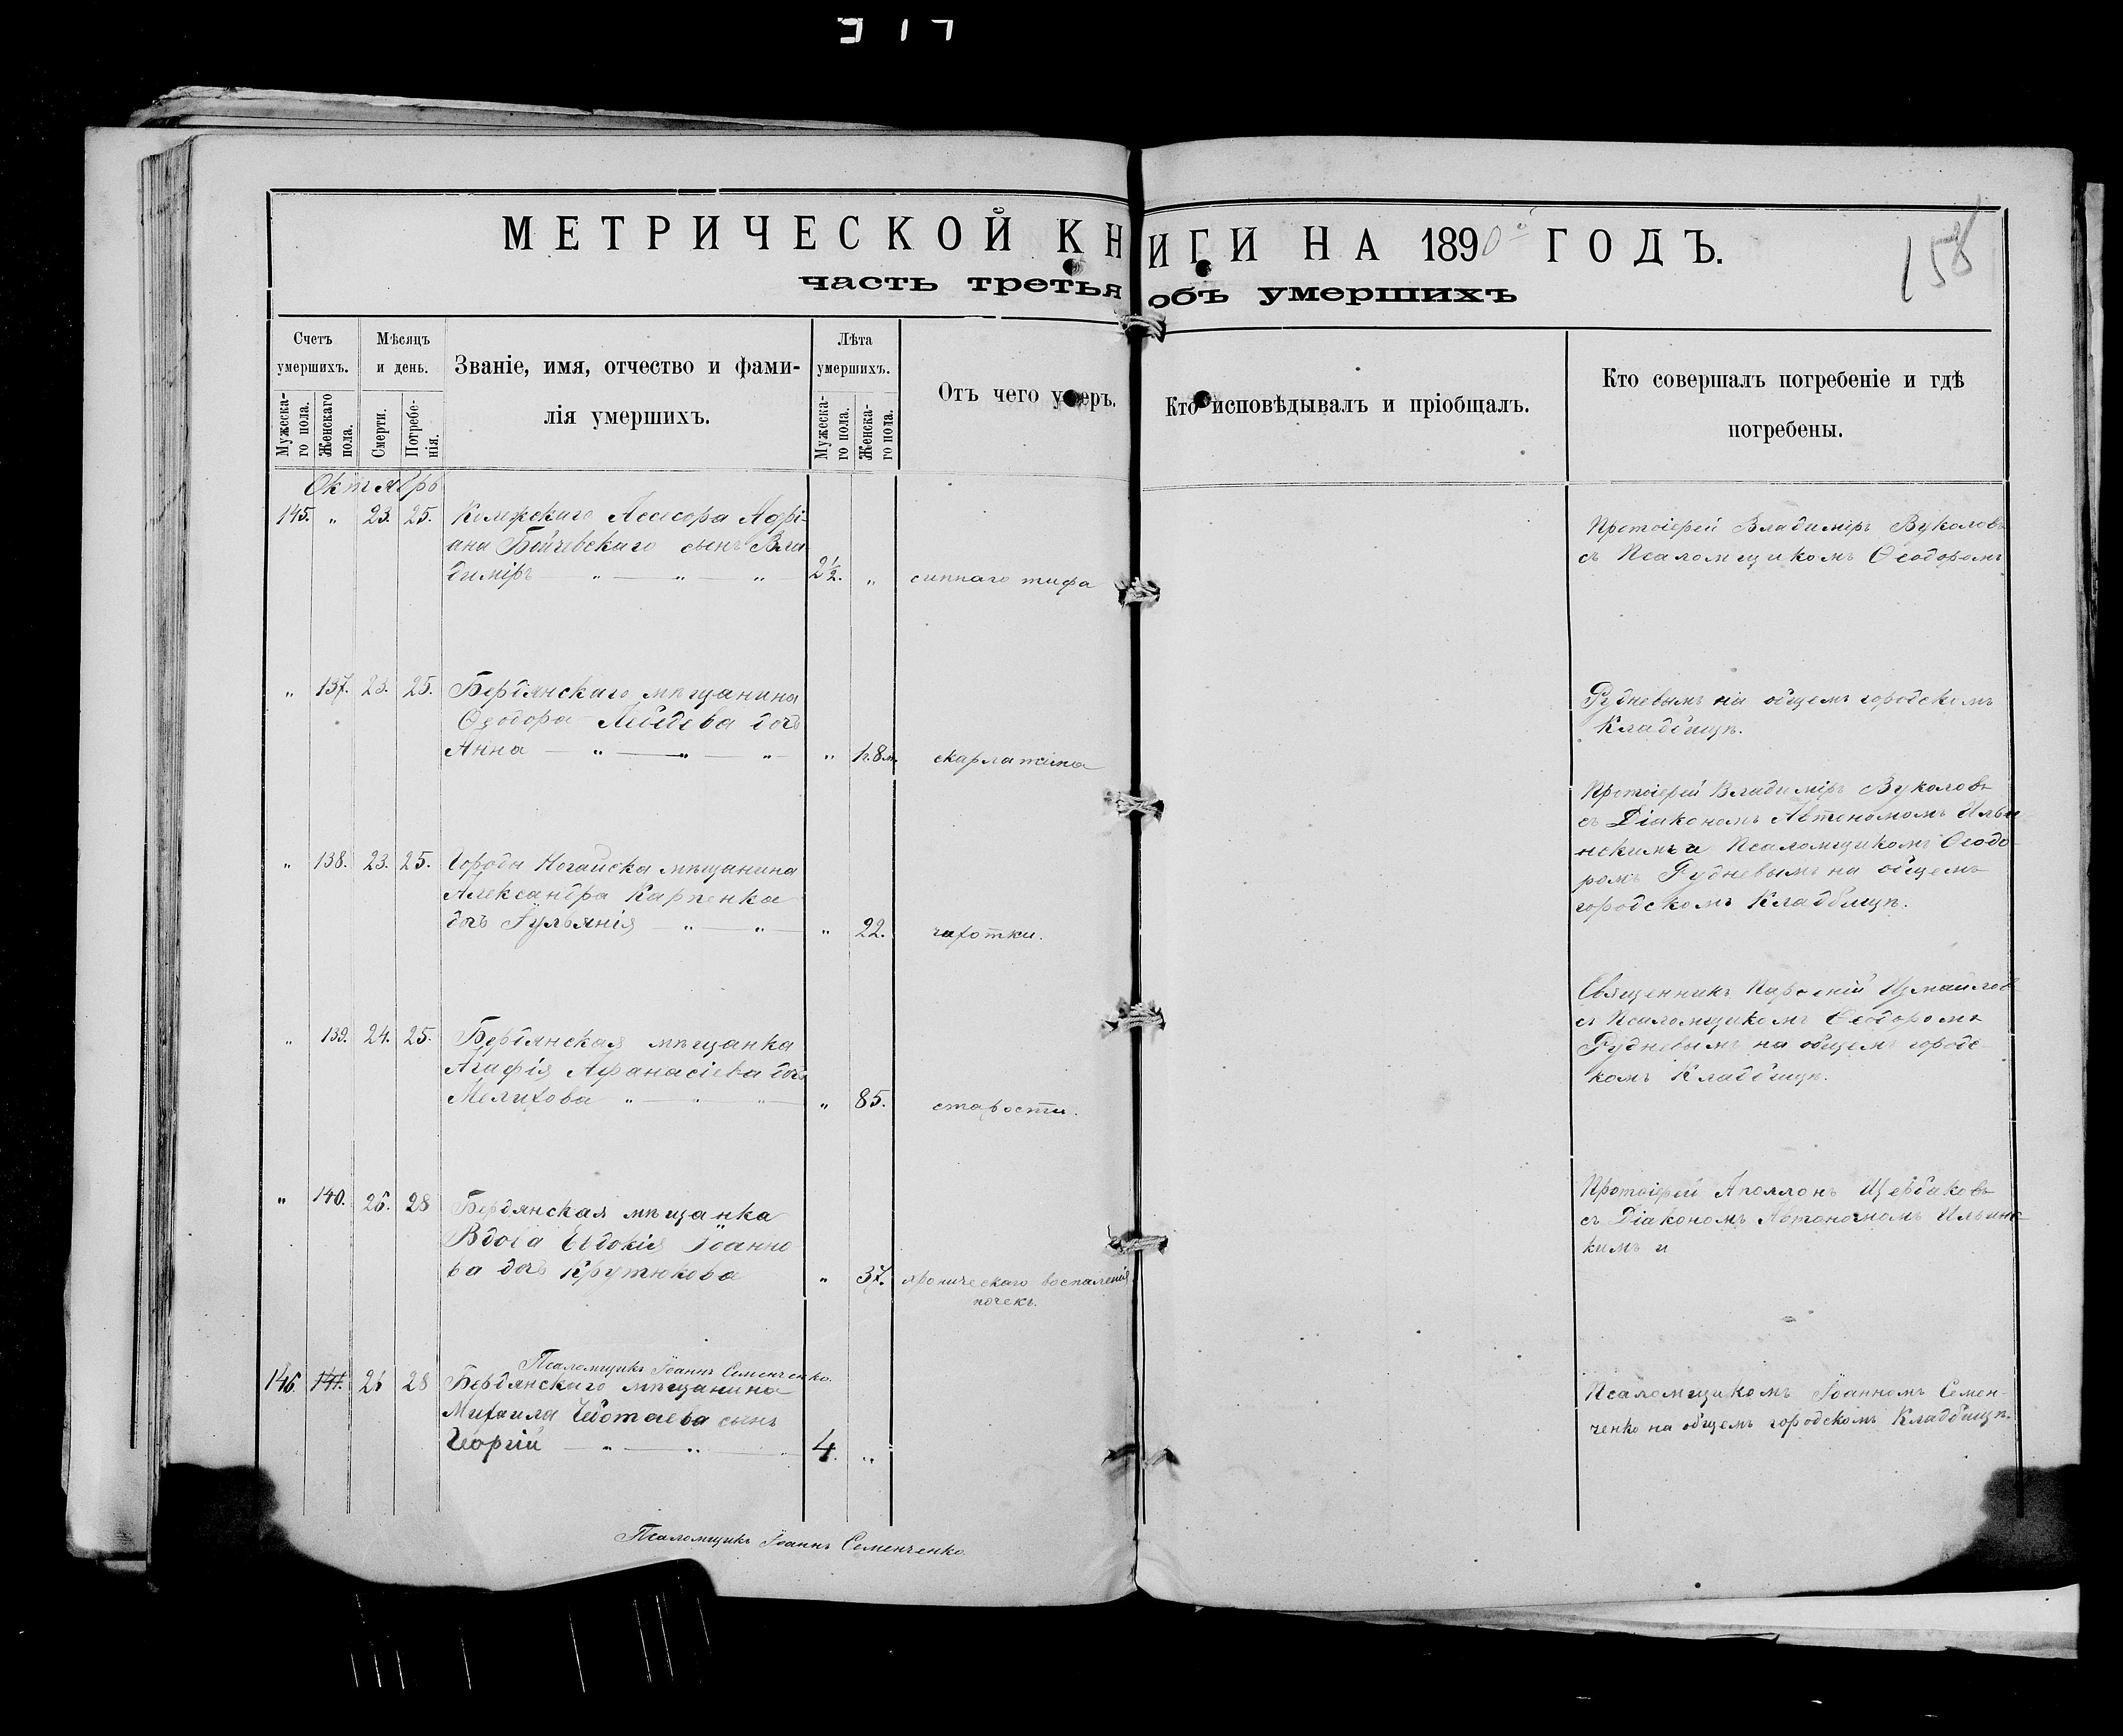 МЕТРИЧЕСКОЙ КНИГИ НА 1890 ГОДЪ.
158
часть третья объ умершихъ
Счетъ умершихъ.
Мужеска-го пола.
Женскаго пола.
Мѣсяцъ и день.
Смерти.
Погребе-нія.
Званіе, имя, отчество и фами-
лія умершихъ.
Лѣта умершихъ.
Мужеска-го пола.
Женска-го пола.
Отъ чего умеръ.
Кто исповѣдывалъ и пріобщалъ.
Кто совершалъ погребеніе и гдѣ
погребены.
Октябрь
145. „ 23. 25. Колежскаго Асесора Адрі-
ана Бойчевскаго сынъ Вла
диміръ — „ — „ „ 2½. „ сыпнаго тифа
Протоіерей Владиміръ Вуколовъ
съ Псаломщикомъ Ѳеодоромъ
„ 137. 23. 25. Бердянскаго мѣщанина
Ѳеодора Лебедева дочь
Анна — „ — „ — „ — „ 1г.8м. скарлатина
Рудневымъ на общемъ городскомъ
Кладбищѣ.
„ 138. 23. 25. Города Ногайска мѣщанина
Александра Карпенка
дочь Іульянія — „ — „ — „ 22. чахотки.
Протоіерей Владиміръ Вуколовъ
съ Діакономъ Автономомъ Ильи
нскимъ и Псаломщикомъ Ѳеодо-
ромъ Рудневымъ на общемъ
городскомъ Кладбищѣ.
„ 139. 24. 25. Бердянская мѣщанка
Агафія Афанасіева дочь
Мелихова „ — „ — „ — „ 85. старости.
Священникъ Парѳеній Измаилов
съ Псаломщикомъ Ѳеодоромъ
Рудневымъ на общемъ городс-
комъ Кладбищѣ.
„ 140. 26. 28 Бердянская мѣщанка
Вдова Евдокія Іоанно
ва дочь Крутюкова „ 37. хроническаго воспаленія
почекъ.
Протоіерей Аполлонъ Щербаковъ
съ Діакономъ Автономомъ Ильинс-
кимъ и
Псаломщикъ Іоаннъ Семенченко.
146. 141. 26 28 Бердянскаго мѣщанина
Михаила Чеботаева сынъ
Георгій — „ — „ — „ 4. „
Псаломщикомъ Іоанномъ Семен-
ченко на общемъ городскомъ Кладбищѣ.
Псаломщикъ Іоаннъ Семенченко.